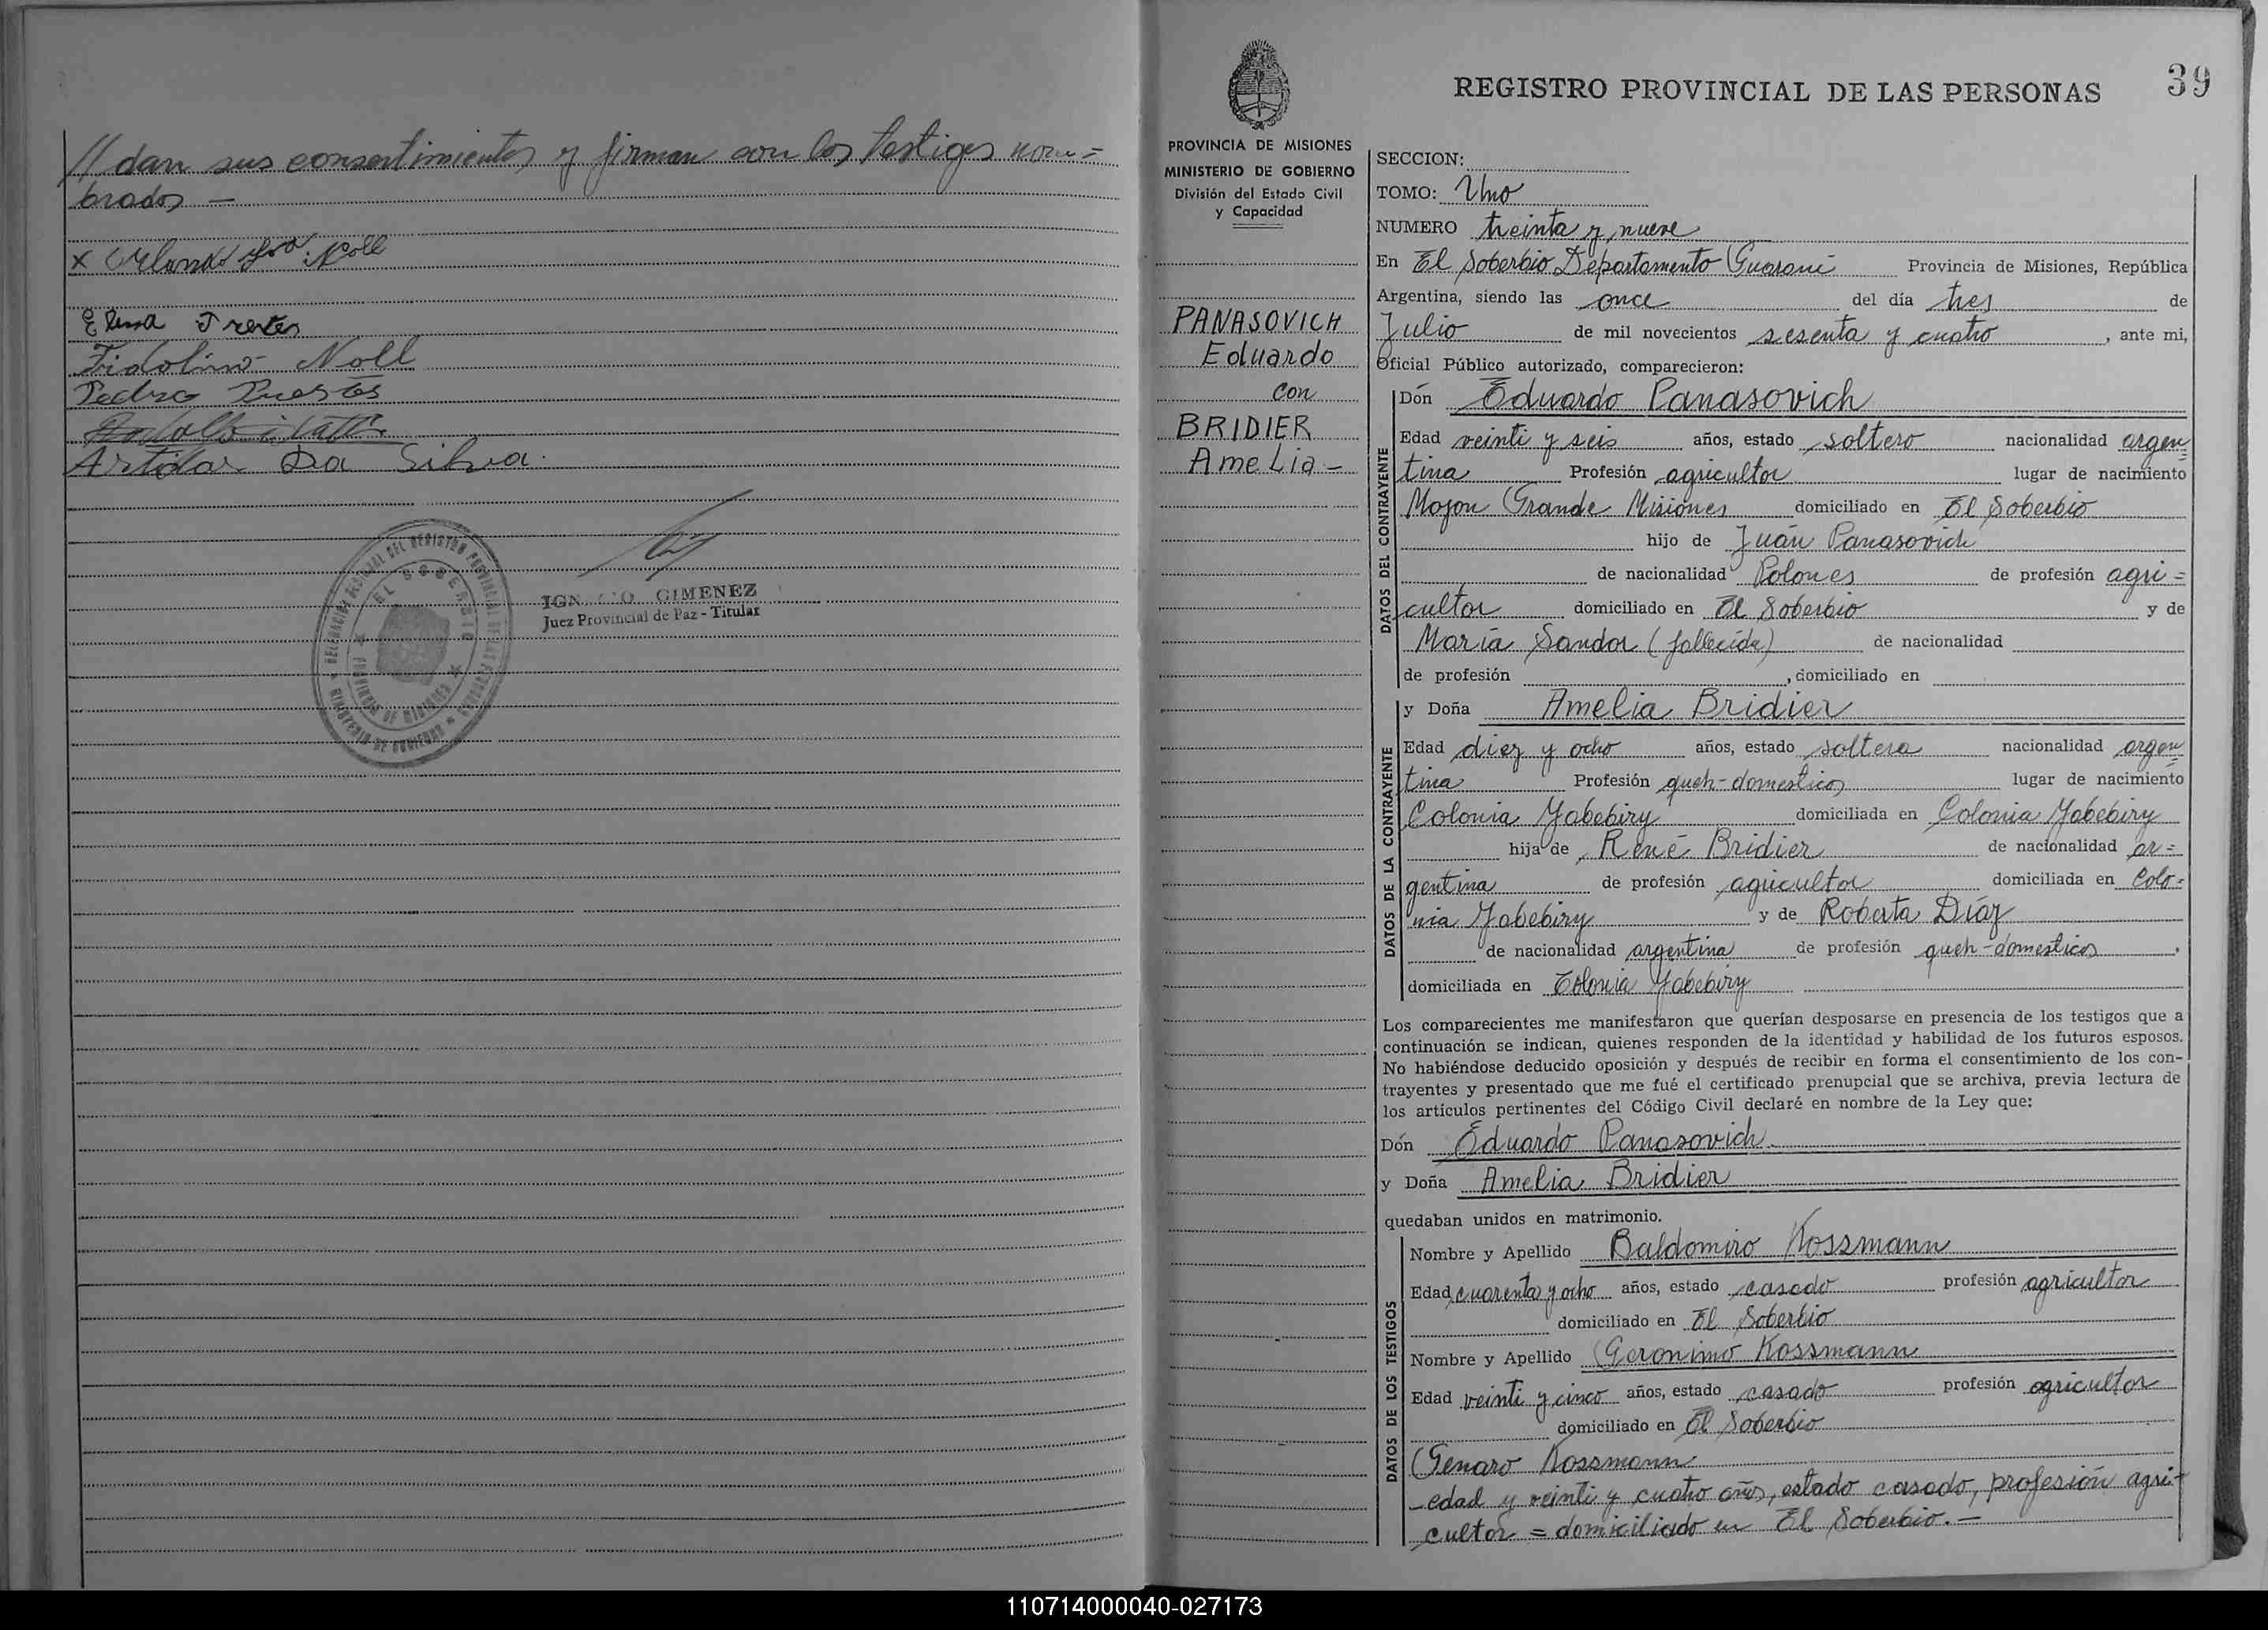 // dan sus consentimientos y firman con los testigos nom=
brados —
x
Elma
Fidolino Noll
Pedro
Artidor Da Silva.
EL SOBERBIO
PROVINCIA DE MISIONES
MINISTERIO DE GOBIERNO
GIMENEZ
Juez Provincial de Paz - Titular
39
REGISTRO PROVINCIAL DE LAS PERSONAS
PROVINCIA DE MISIONES
MINISTERIO DE GOBIERNO
División del Estado Civil
y Capacidad
PANASOVICH
Eduardo
con
BRIDIER
Amelia -
SECCION:
TOMO: Uno
NUMERO treinta y nueve
En El Soberbio Departamento Guarani Provincia de Misiones, República
Argentina, siendo las once del día tres de
Julio de mil novecientos sesenta y cuatro, ante mi,
Oficial Público autorizado, comparecieron:
DATOS DEL CONTRAYENTE
Dón Eduardo Panasovich
Edad veinti y seis años, estado soltero nacionalidad argen=
tina Profesión agricultor lugar de nacimiento
Mojon Grande Misiones domiciliado en El Soberbio
hijo de Juán Panasovich
de nacionalidad Polones de profesión agri=
cultor domiciliado en El Soberbio y de
María Sandor (fallecida) de nacionalidad
de profesión , domiciliado en
DATOS DE LA CONTRAYENTE
y Doña Amelia Bridier
Edad diez y ocho años, estado soltera nacionalidad argen=
tina Profesión queh-domesticos lugar de nacimiento
Colonia Yabebiry domiciliada en Colonia Yabebiry
hija de René Bridier de nacionalidad ar=
gentina de profesión agricultor domiciliada en Colo=
nia Yabebiry y de Roberta Díaz
de nacionalidad argentina de profesión queh-domesticos,
domiciliada en Colonia Yabebiry
Los comparecientes me manifestaron que querían desposarse en presencia de los testigos que a
continuación se indican, quienes responden de la identidad y habilidad de los futuros esposos.
No habiéndose deducido oposición y después de recibir en forma el consentimiento de los con-
trayentes y presentado que me fué el certificado prenupcial que se archiva, previa lectura de
los artículos pertinentes del Código Civil declaré en nombre de la Ley que:
Dón Eduardo Panasovich
y Doña Amelia Bridier
quedaban unidos en matrimonio.
DATOS DE LOS TESTIGOS
Nombre y Apellido Baldomiro Kossmann
Edad cuarenta y ocho años, estado casado profesión agricultor
domiciliado en El Soberbio
Nombre y Apellido Geronimo Kossmann
Edad veinti y cinco años, estado casado profesión agricultor
domiciliado en El Soberbio
Genaro Kossmann
-edad y veinti y cuatro años, estado casado, profesión agri-
cultor = domiciliado en El Soberbio. —
110714000040-027173